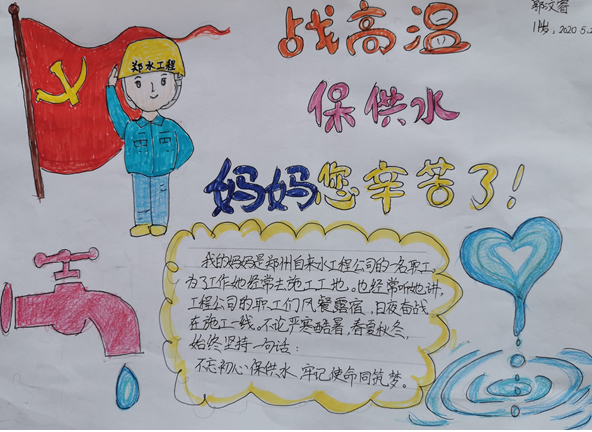 战高温
保供水
妈妈您辛苦了!
郑水工程
2020.5.2
我的妈妈是郑州自来水工程公司的一名职工,
为了工作她经常去施工工地。也经常听她讲,
工程公司的职工们风餐露宿,日夜奋战
在施工一线。不论严寒酷暑、春夏秋冬,
始终坚持一句话:
不忘初心保供水 牢记使命同筑梦。